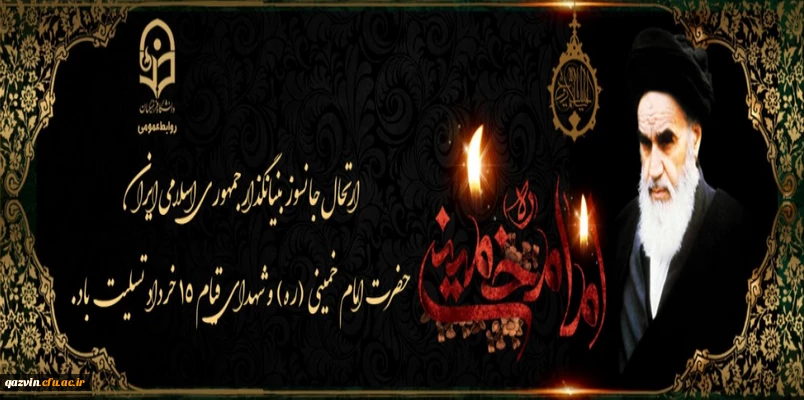 دانشگاه فرهنگیان
روابط عمومی
ارتحال جانسوز بنیانگذار جمهوری اسلامی ایران
حضرت امام خمینی (ره) و شهدای قیام ۱۵ خرداد تسلیت باد.
امام خمینی ره
qazvin.cfu.ac.ir